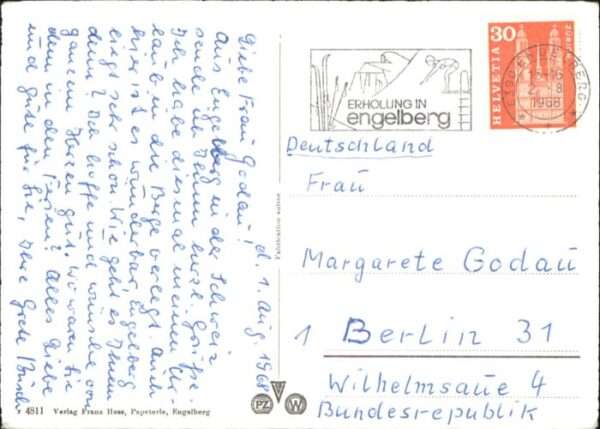 d. 1. Aug. 1968
Liebe Frau Godau!
Aus Engelberg in der Schweiz
sende ich Ihnen herzl. Grüße.
Ich habe diesmal meinen Ur-
laub in die Berge verlegt. Auch
hier ist es wunderbar. Engelberg
liegt sehr schön. Wie geht es Ihnen
denn? Ich hoffe und wünsche von
ganzem Herzen gut. Wo waren Sie
denn in den Ferien? Alles Liebe
und Gute für Sie, Ihre Grete Büsch
4811 Verlag Franz Hess, Papeterie, Engelberg
Fabrication suisse
PZ W
ERHOLUNG IN
engelberg
6390 ENGELBERG
2. 8
1968
30
HELVETIA
ZÜRICH
Deutschland
Frau
Margarete Godau
1 Berlin 31
Wilhelmsaue 4
Bundesrepublik